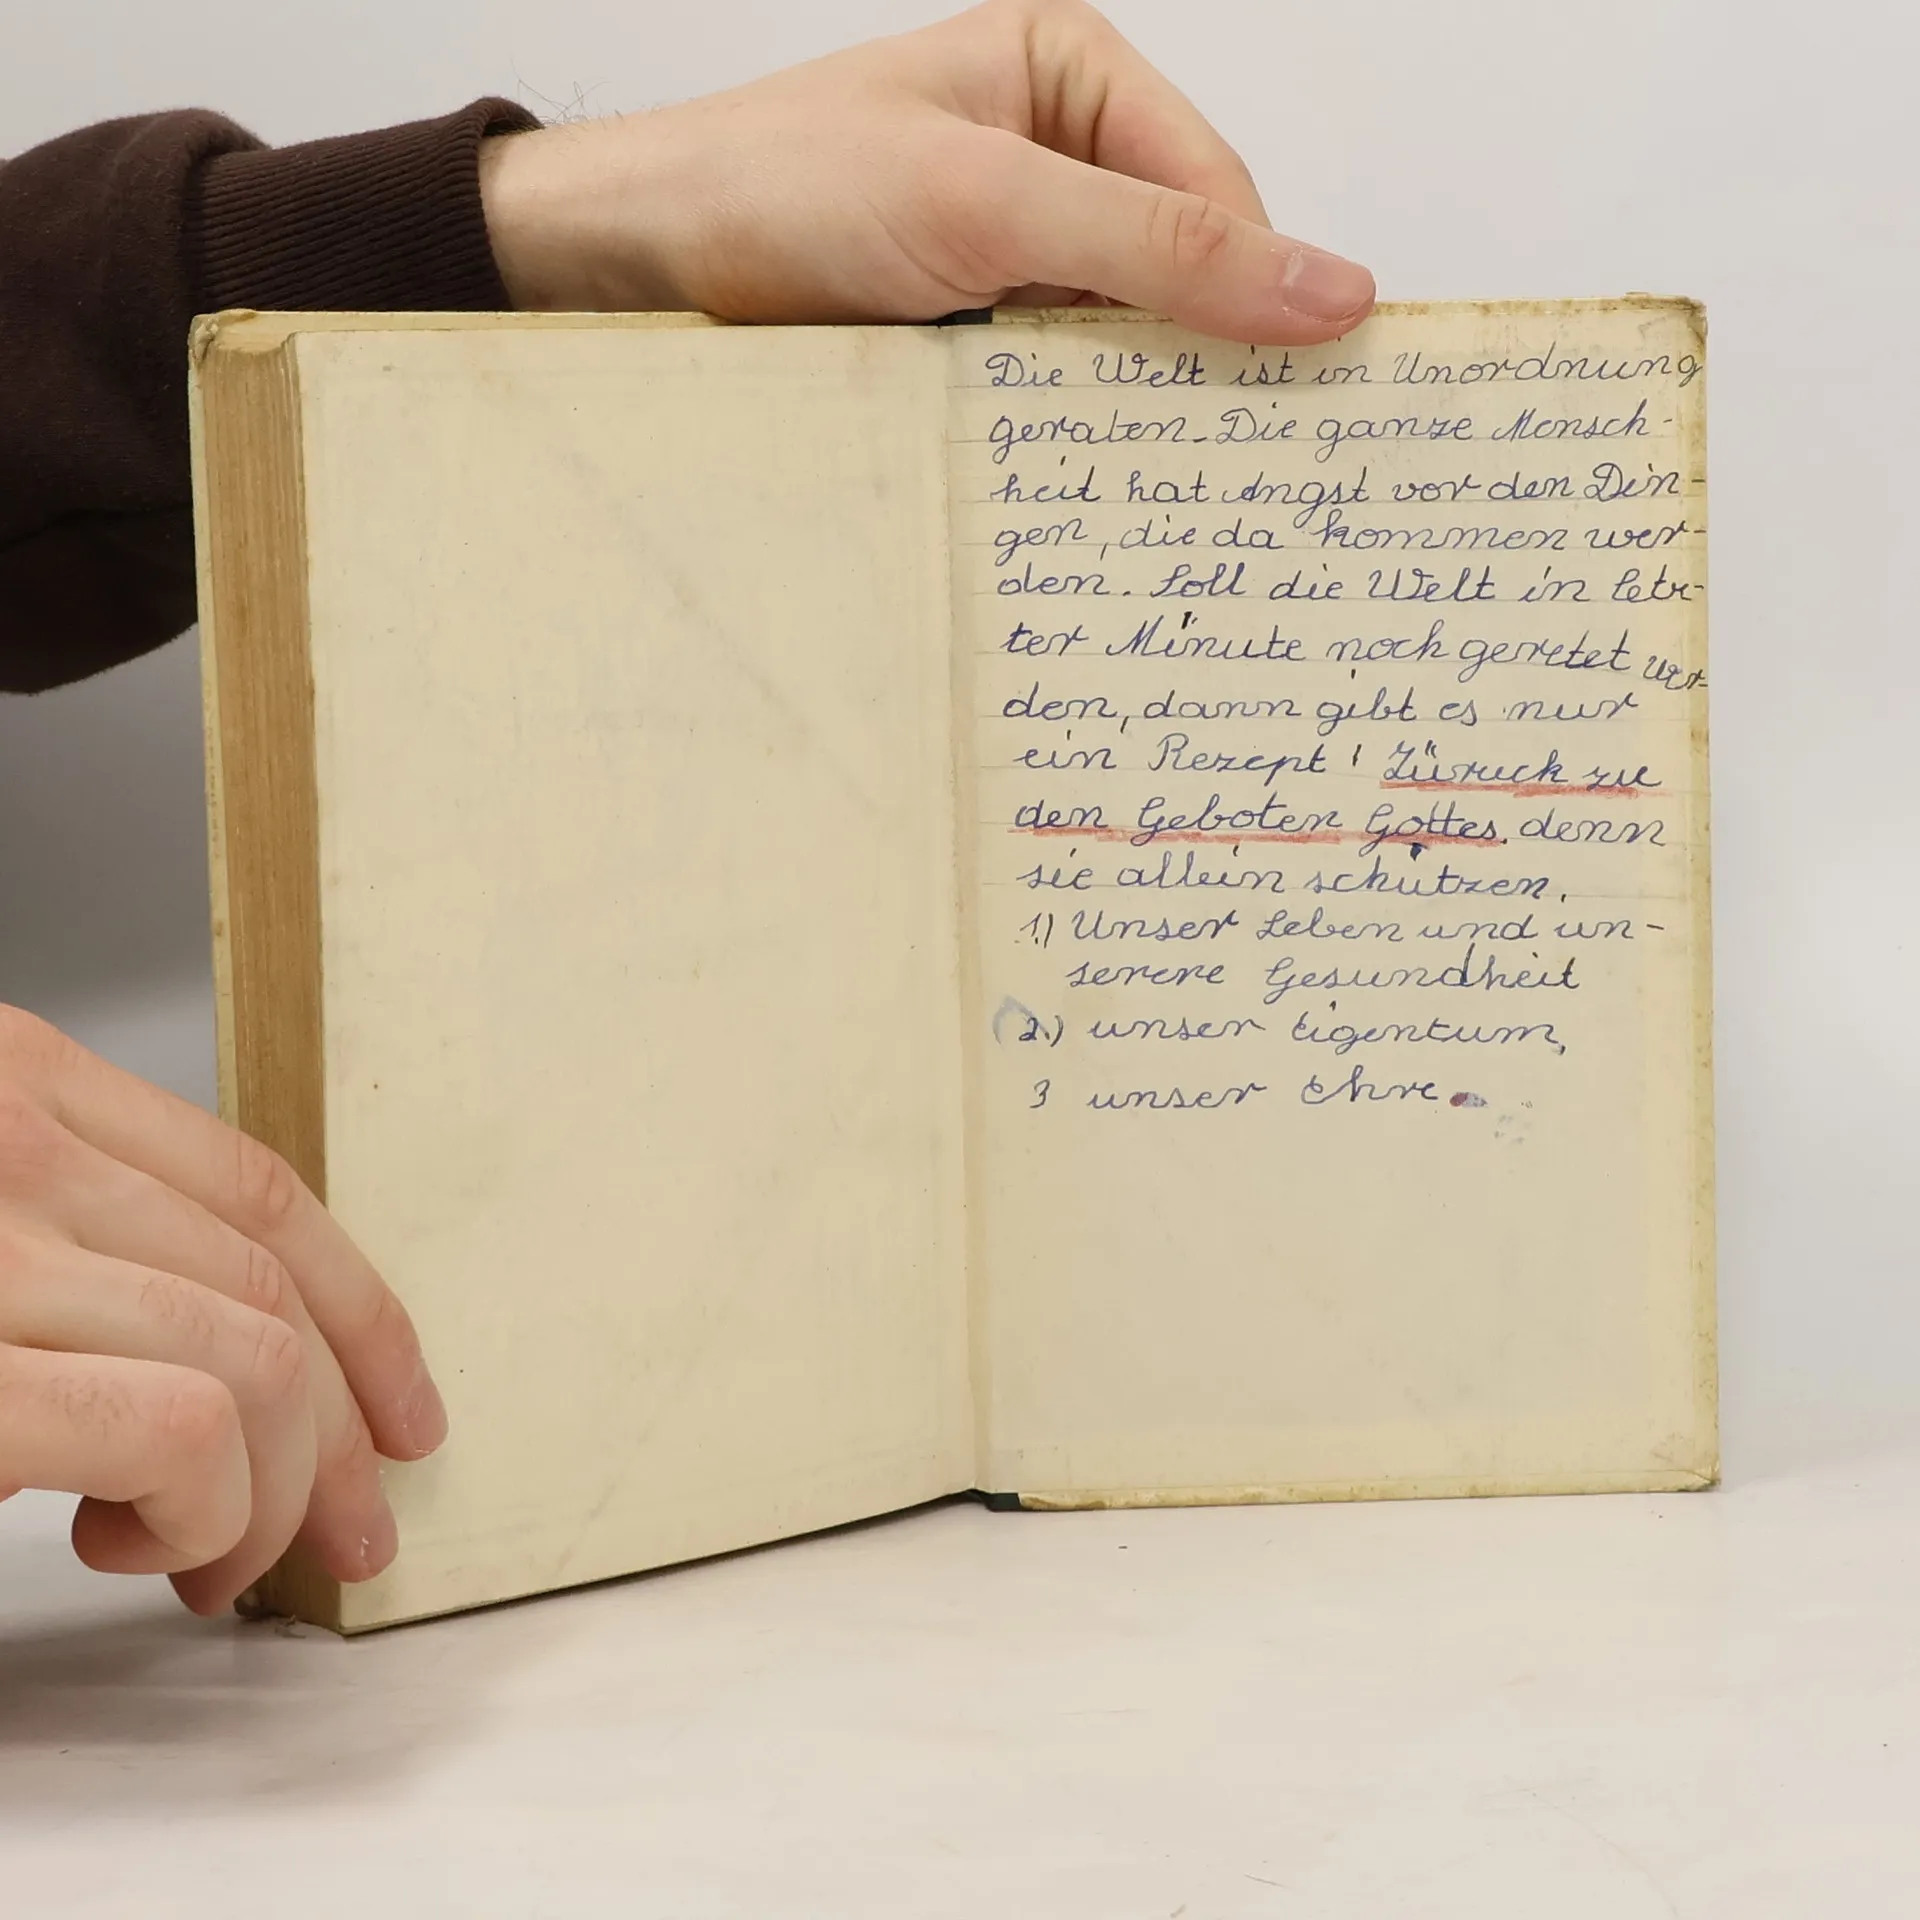 Die Welt ist in Unordnung
geraten. Die ganze Mensch-
heit hat Angst vor den Din-
gen, die da kommen wer-
den. Soll die Welt in letz-
ter Minute noch geretet wer-
den, dann gibt es nur
ein Rezept! Züruck zu
den Geboten Gottes. denn
sie allein schützen.
1.) Unser Leben und un-
serere Gesundheit
2.) unser Eigentum,
3 unser Ehre.